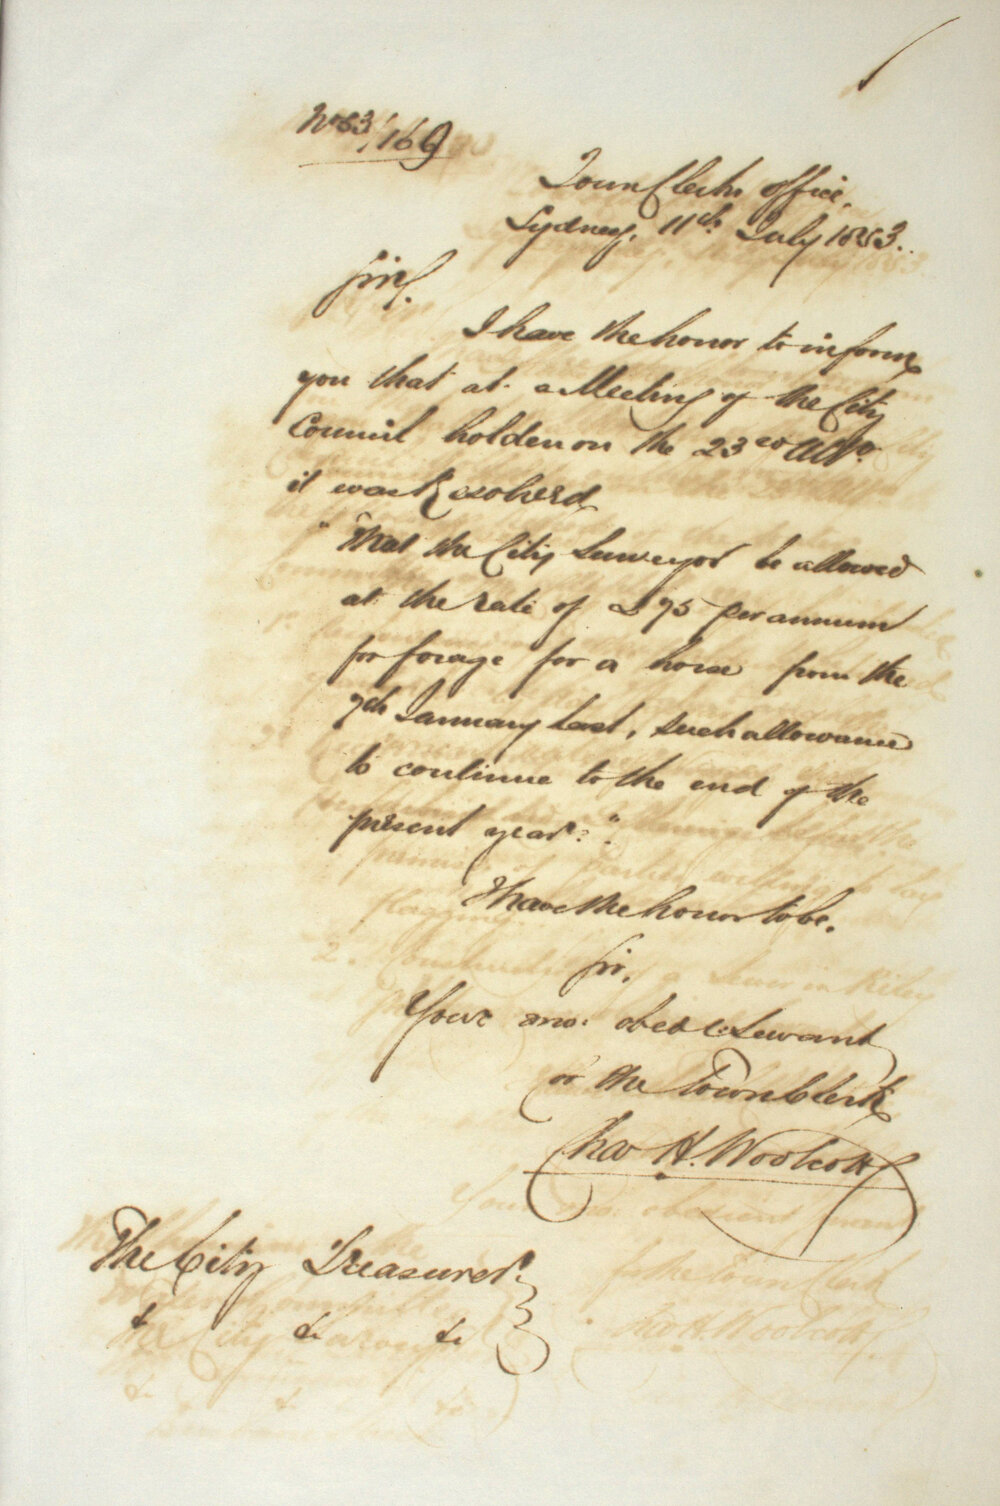 No 53/169
Town Clerks office,
Sydney, 11th July 1853.
Sir,
I have the honor to inform
you that at a Meeting of the City
Council holden on the 23rd Ulto.
it was Resolved
"That the City Surveyor be allowed
at the rate of £75 per annum
for forage for a horse from the
7th January last, such allowance
to continue to the end of the
present year."
I have the honor to be,
Sir,
Your mo: obed t. Servant
for the Town Clerk
Chas H. Woolcott
The City Treasurer.
&c &c &c